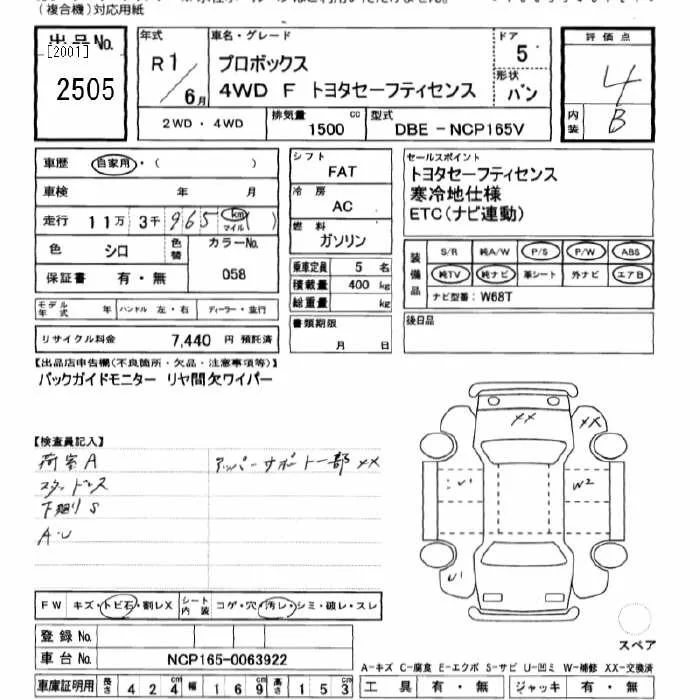 (複合機)対応用紙
出品No.
[2001]
2505
年式
R1/6月
車名・グレード
プロボックス
4WD F トヨタセーフティセンス
ドア
5
形状
バン
評価点
4
内装
B
2WD・4WD
排気量 1500 cc
型式 DBE-NCP165V
車歴 自家用・( )
車検 年 月
走行 11万3千965 km マイル ( )
色 シロ
色替
カラーNo. 058
保証書 有・無
モデル年式 年 ハンドル 左・右 ディーラー・並行
リサイクル料金 7,440 円 預託済
シフト
FAT
冷房
AC
燃料
ガソリン
乗車定員 5 名
積載量 400 kg
総重量 kg
書類期限
月 日
セールスポイント
トヨタセーフティセンス
寒冷地仕様
ETC(ナビ連動)
装備品
S/R 純A/W P/S P/W ABS
純TV 純ナビ 革シート 外ナビ エアB
ナビ型番: W68T
後日品
【出品店申告欄(不良箇所・欠品・注意事項等)】
バックガイドモニター リヤ間欠ワイパー
【検査員記入】
荷室A
アッパーサポート一部XX
スタッドレス
下廻りS
A・U
XX
XX
U1
W2
U1
スペア
FW キズ・トビ石・割レX
シート内装 コゲ・穴・汚レ・シミ・破レ・スレ
登録No.
車台No. NCP165-0063922
A-キズ C-腐食 E-エクボ S-サビ U-凹ミ W-補修 XX-交換済
車庫証明用 長さ 424 幅 169 高さ 153
工具 有・無 ジャッキ 有・無